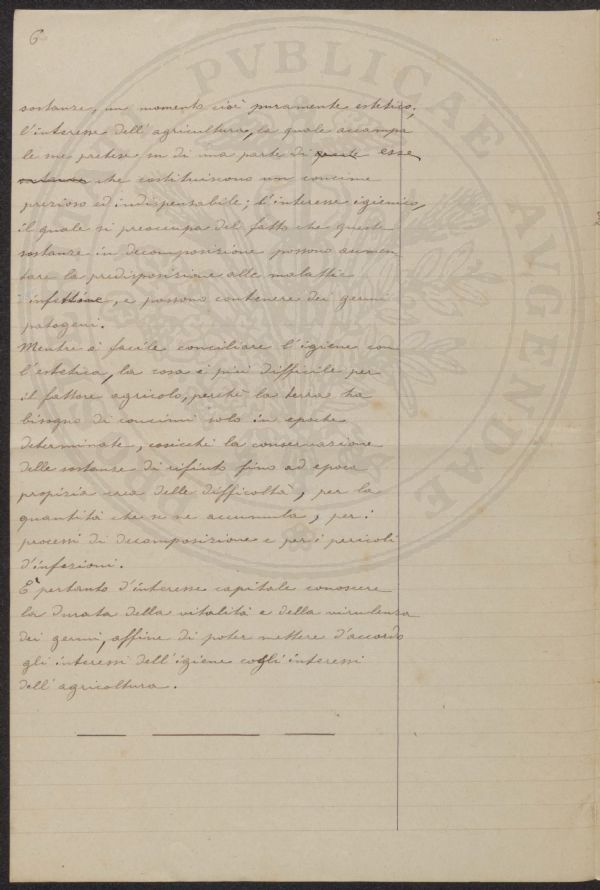 6
sostanze, un momento cioè puramente estetico;
l'interesse dell'agricultura, la quale accampa
le sue pretese su di una parte di queste esse
che costituiscono un concime
prezioso ed indispensabile; l'interesse igienico,
il quale si preoccupa del fatto che queste
sostanze in decomposizione possono aumen-
tare la predisposizione alle malattie
infettive, e possono contenere dei germi
patogeni.
Mentre è facile conciliare l'igiene con
l'estetica, la cosa è più difficile per
il fattore agricolo, perchè la terra ha
bisogno di concimi solo in epoche
determinate, cosicchè la conservazione
delle sostanze di rifiuto fino ad epoca
propizia crea delle difficoltà, per la
quantità che se ne accumula, per i
processi di decomposizione e per i pericoli
d'infezioni.
È pertanto d'interesse capitale conoscere
la durata della vitalità e della virulenza
dei germi, affine di poter mettere d'accordo
gli interessi dell'igiene cogli interessi
dell'agricoltura.
PVBLICAE
AVGENDAE